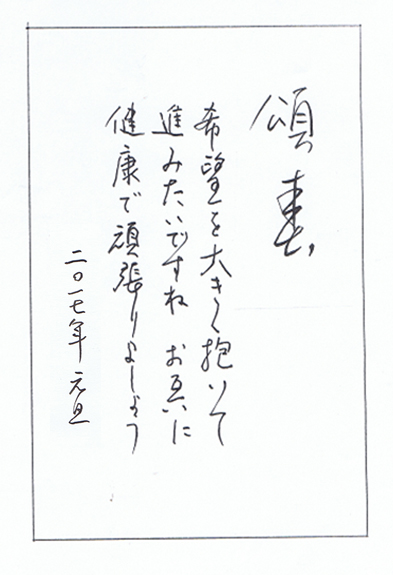 頌春
希望を大きく抱いて
進みたいですね　お互いに
健康で頑張りましょう
二〇一七年　元旦